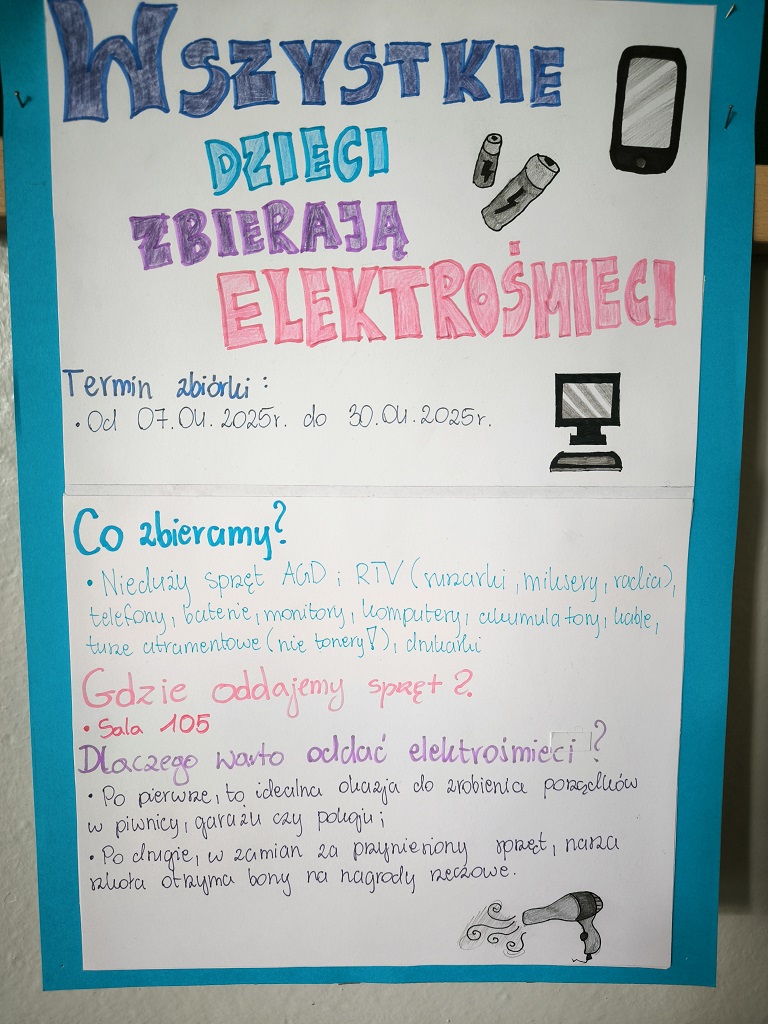 WSZYSTKIE
DZIECI
ZBIERAJĄ
ELEKTROŚMIECI
Termin zbiórki:
• Od 07.04.2025r. do 30.04.2025r.
Co zbieramy?
• Nieduży sprzęt AGD i RTV (suszarki, miksery, radia),
telefony, baterie, monitory, komputery, akumulatory, kable,
tusze atramentowe (nie tonery!), drukarki
Gdzie oddajemy sprzęt?
• Sala 105
Dlaczego warto oddać elektrośmieci?
• Po pierwsze, to idealna okazja do zrobienia porządków
w piwnicy, garażu czy pokoju;
• Po drugie, w zamian za przyniesiony sprzęt, nasza
szkoła otrzyma bony na nagrody rzeczowe.